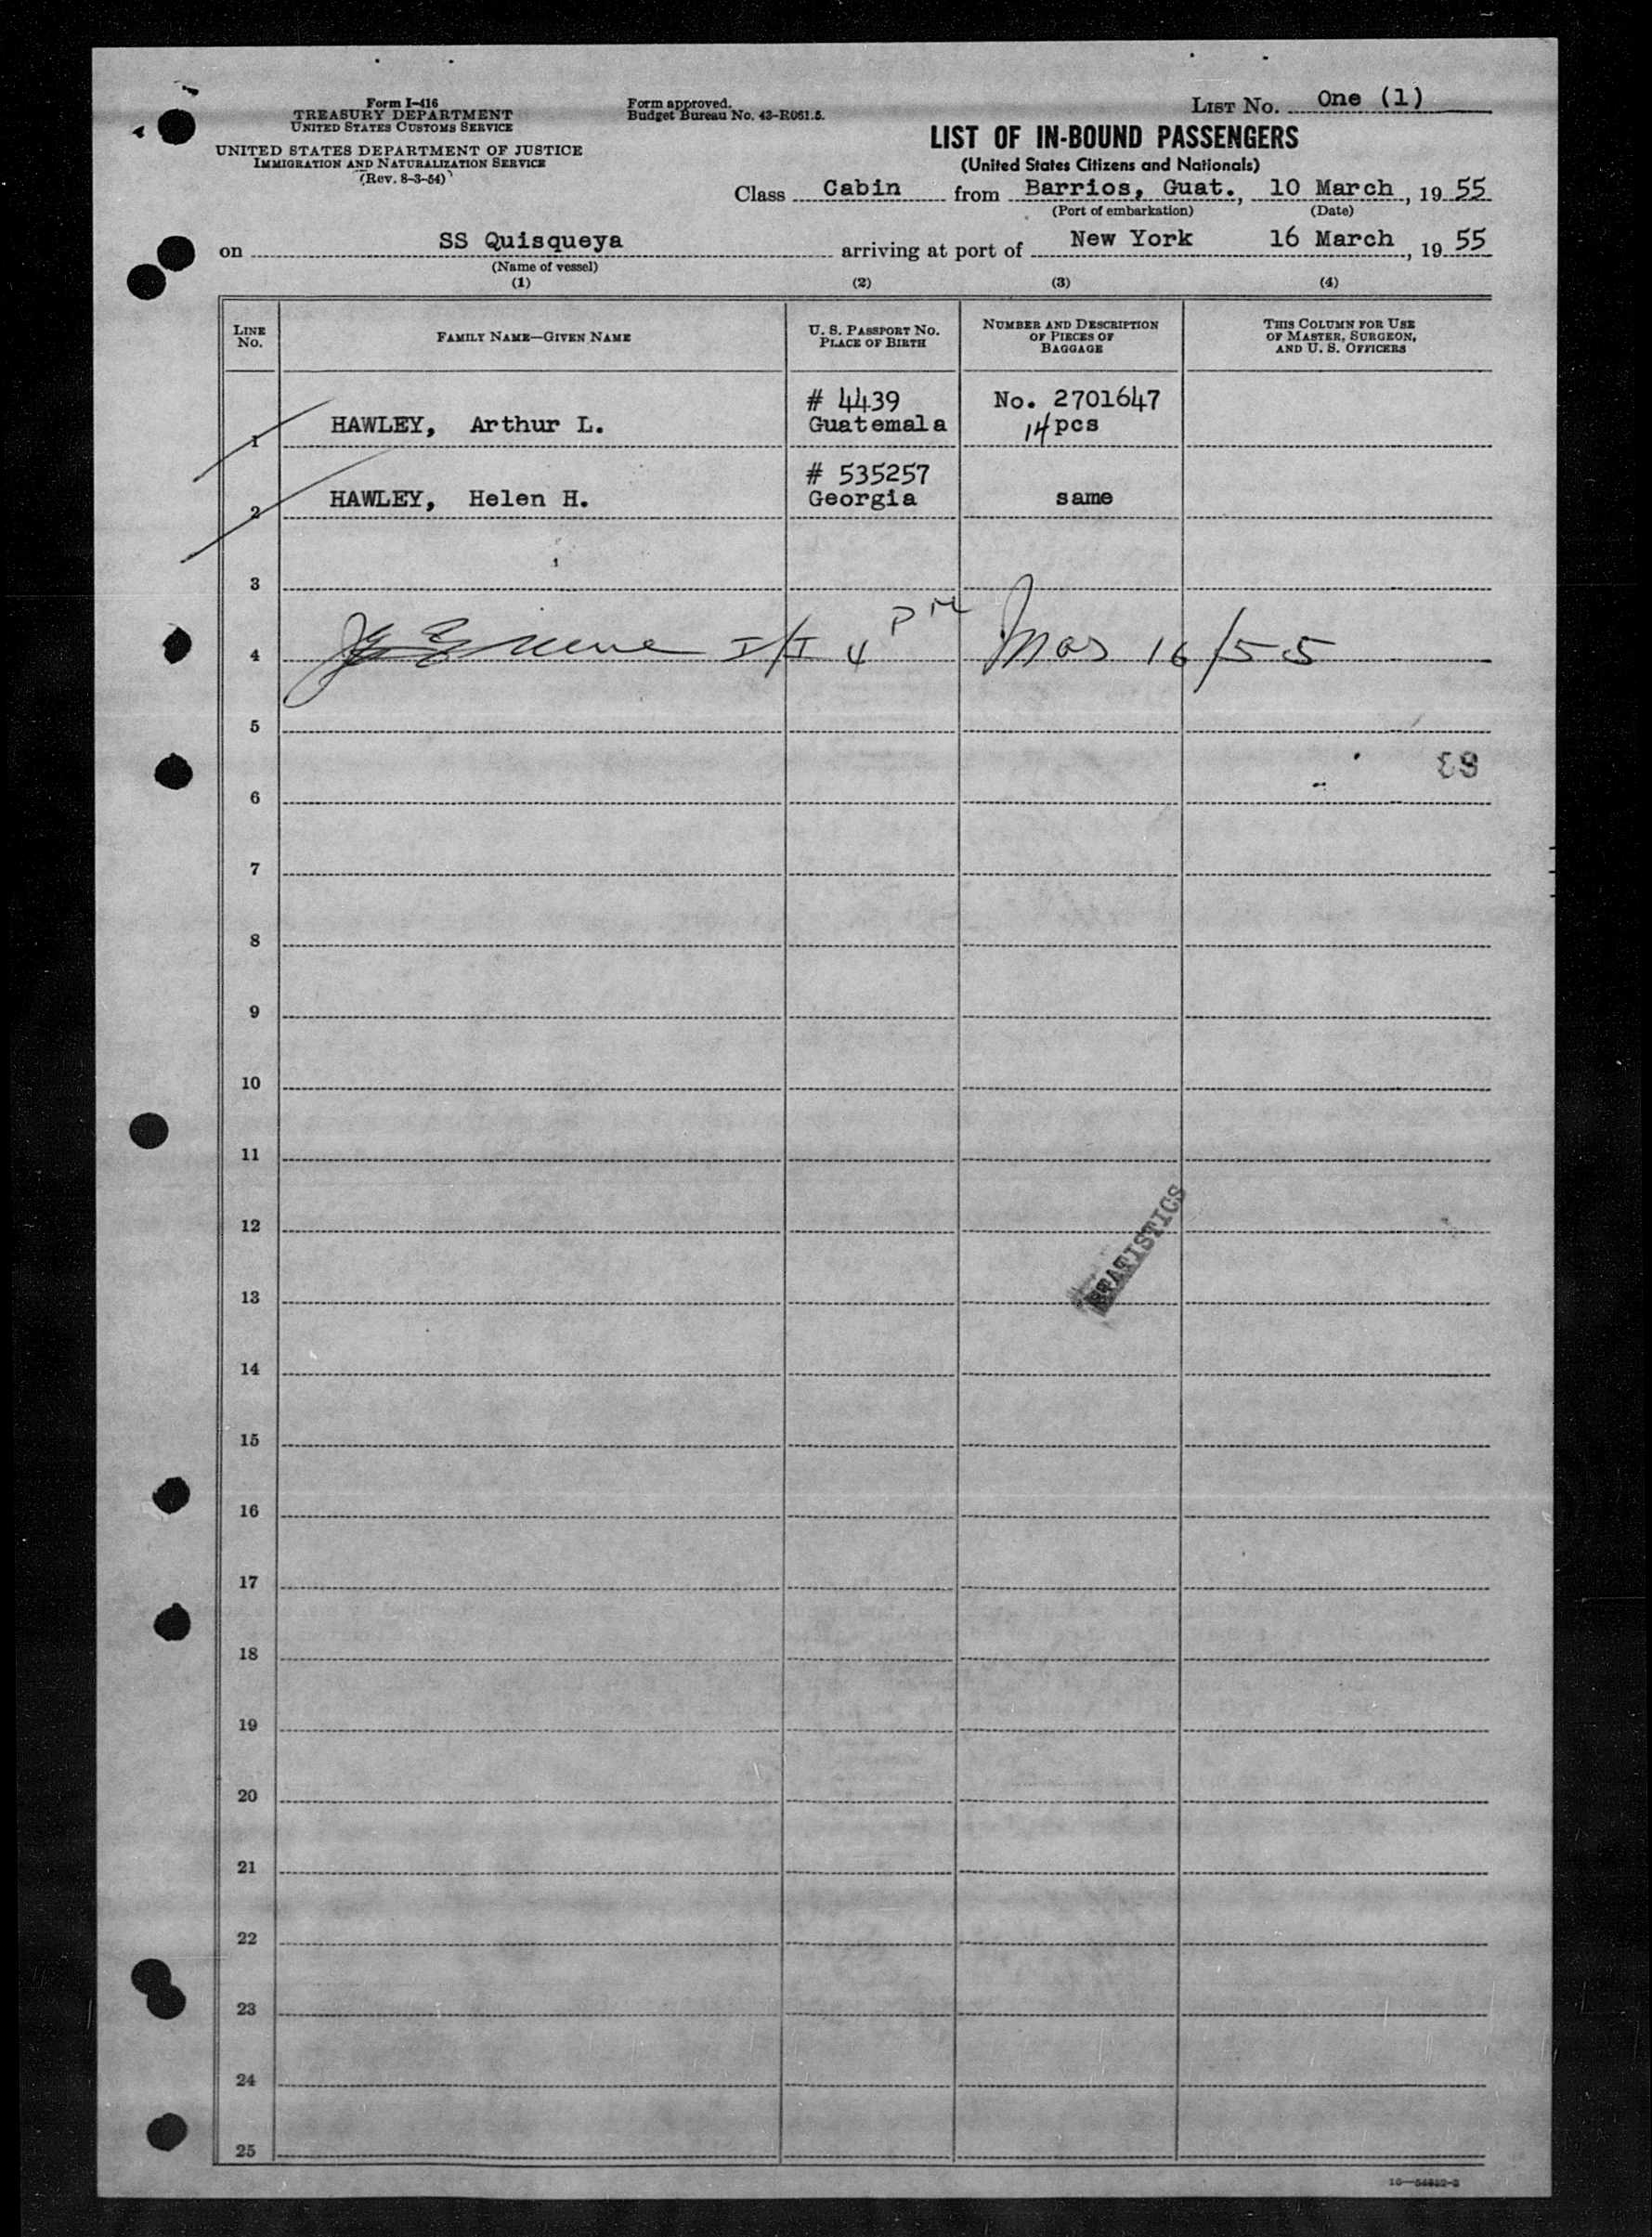 Form I-416
TREASURY DEPARTMENT
UNITED STATES CUSTOMS SERVICE
UNITED STATES DEPARTMENT OF JUSTICE
IMMIGRATION AND NATURALIZATION SERVICE
(Rev. 8-3-54)
Form approved.
Budget Bureau No. 43-R061.5.
LIST NO. One (1)
LIST OF IN-BOUND PASSENGERS
(United States Citizens and Nationals)
Class Cabin from Barrios, Guat., 10 March, 19 55
(Port of embarkation) (Date)
on SS Quisqueya arriving at port of New York 16 March, 19 55
(Name of vessel)
(1) (2) (3) (4)
LINE NO. FAMILY NAME—GIVEN NAME U. S. PASSPORT NO. PLACE OF BIRTH NUMBER AND DESCRIPTION OF PIECES OF BAGGAGE THIS COLUMN FOR USE OF MASTER, SURGEON, AND U. S. OFFICERS
# 4439 No. 2701647
1 HAWLEY, Arthur L. Guatemala 14 pcs
# 535257
2 HAWLEY, Helen H. Georgia same
3
4 I/I 4 PM Mar 16/55
5
6
7
8
9
10
11
12
STATISTICS
13
14
15
16
17
18
19
20
21
22
23
24
25